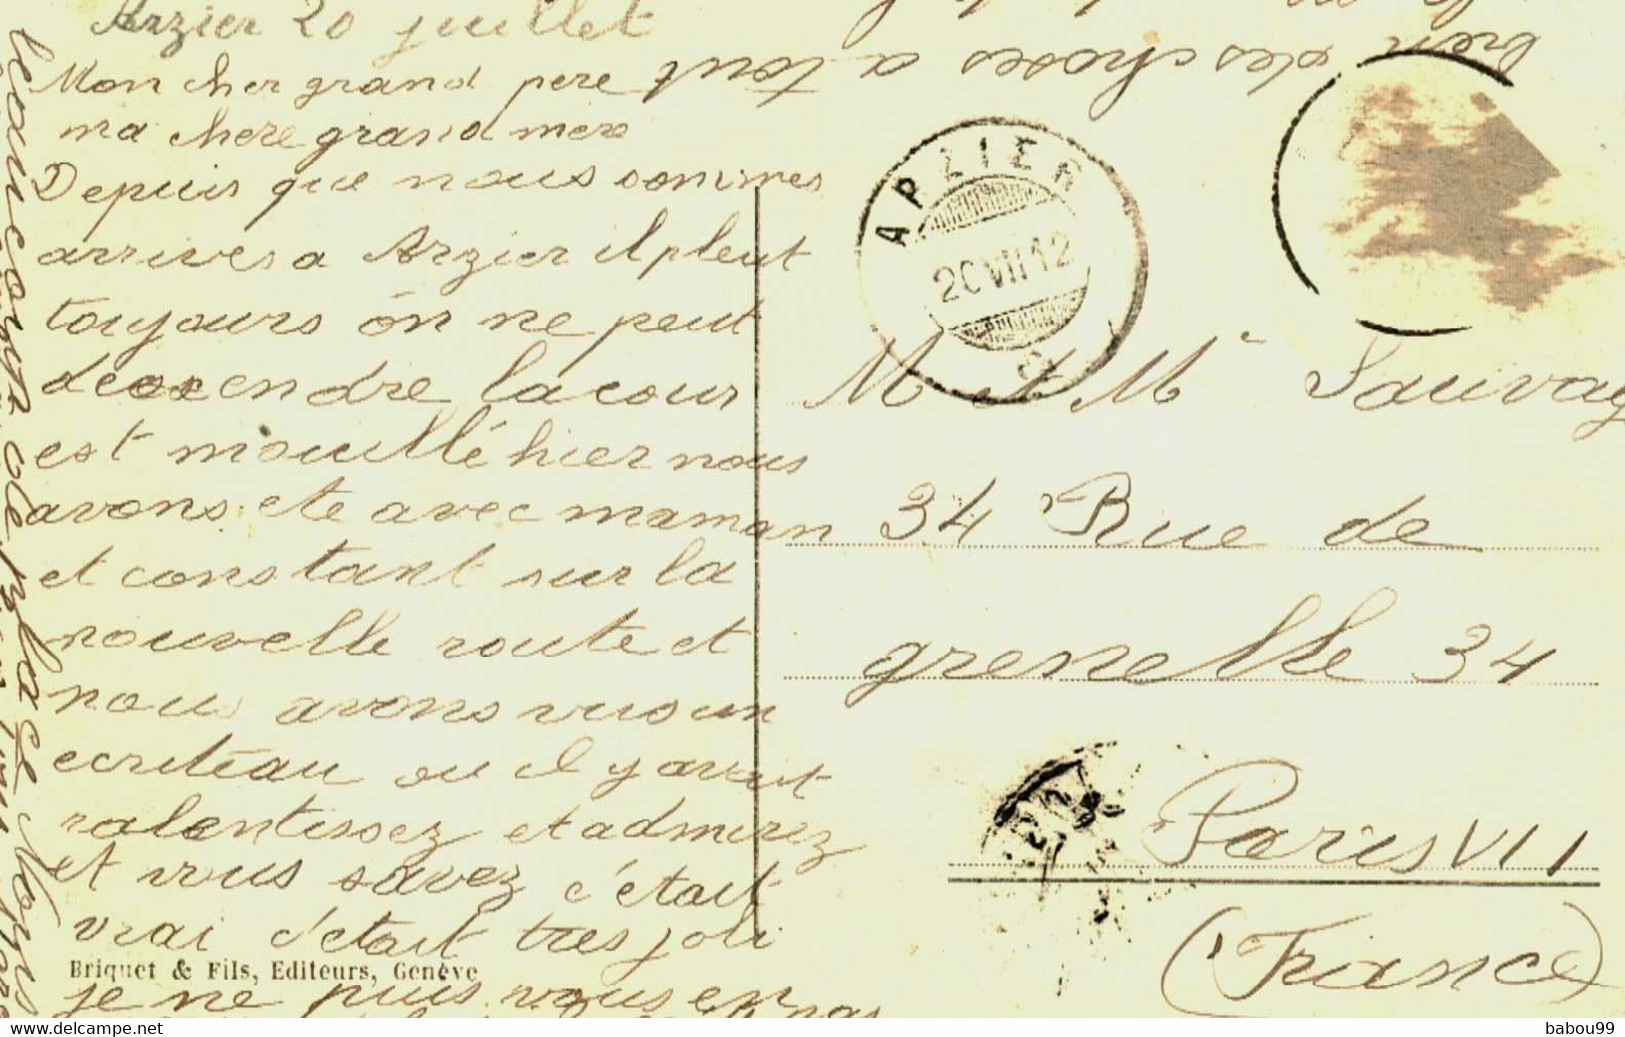 Arzier 20 juillet
Mon cher grand pere
ma chere grand mere
Depuis que nous sommes
arrives a Arzier il pleut
toujours on ne peut
descendre la cour
est mouillé hier nous
avons ete avec maman
et constant sur la
nouvelle route et
nous avons vus un
ecriteau ou il y avait
ralentissez et admirez
et vous savez c'etait
vrai c'etait tres joli
je ne puis vous en
bien des choses a tout
Briquet & Fils, Editeurs, Genève
ARZIER
20 VII 12
M et Me Sauvag
34 Rue de
grenelle 34
Paris VII
(France)
www.delcampe.net
babou99